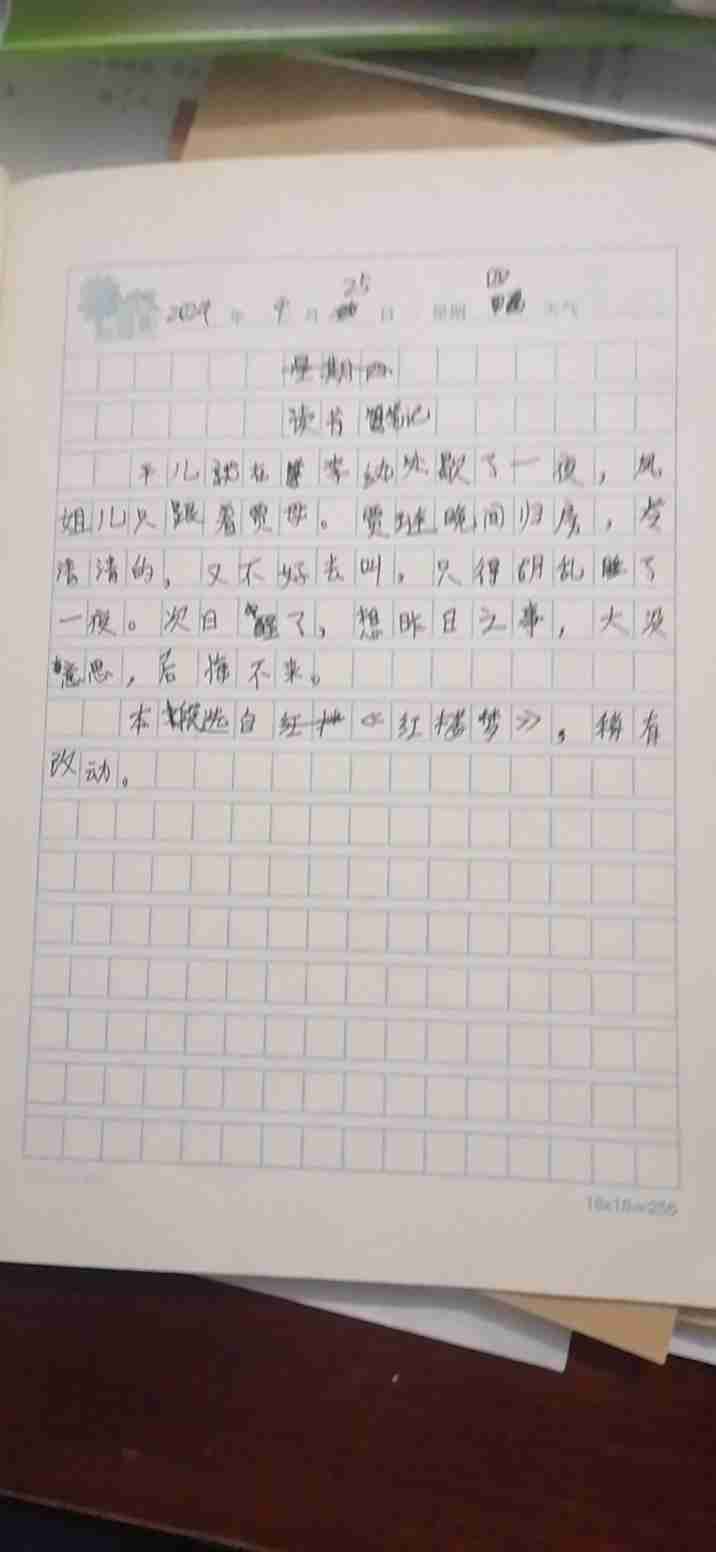 2024 年 9 月 25 日 星期 四 天气
星期四
读书笔记
平儿就在李纨处歇了一夜，凤
姐儿只跟着贾母。贾琏晚间归房，冷
清清的，又不好去叫，只得胡乱睡了
一夜。次日醒了，想昨日之事，大没
意思，后悔不来。
本段选自红《红楼梦》，稍有
改动。